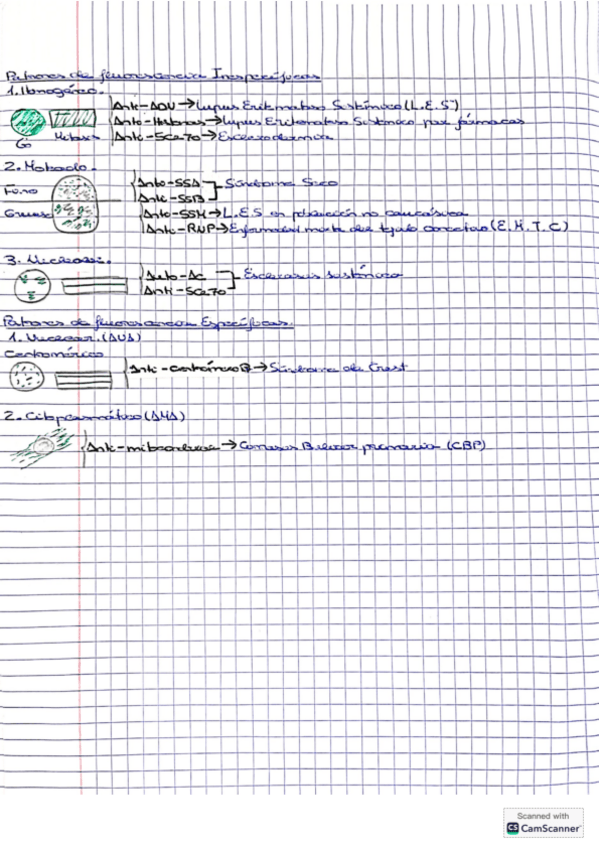 Patrones de fluorescencia Inespecíficas
1. Homogéneo.
Anti-ADN → Lupus Eritematoso Sistémico (L.E.S)
Anti-Histonas → Lupus Eritematoso Sistémico por fármacos
Metafase
G0
Anti-Scl 70 → Esclerodermia
2. Moteado.
Fino
Anti-SSA
Síndrome Seco
Anti-SSB
Grueso
Anti-SSM → L.E.S en población no caucásica
Anti-RNP → Enfermedad mixta del tejido conectivo (E.M.T.C)
3. Nucleolar.
Esclerosis sistémica
Anti-Scl 70
Patrones de fluorescencia Específicas.
1. Nuclear. (ANA)
Centromérico
Anti-centrómero B → Síndrome de Crest
2. Citoplasmático (AMA)
Anti-mitocondrial → Cirrosis Biliar primaria (CBP)
Scanned with
CS CamScanner